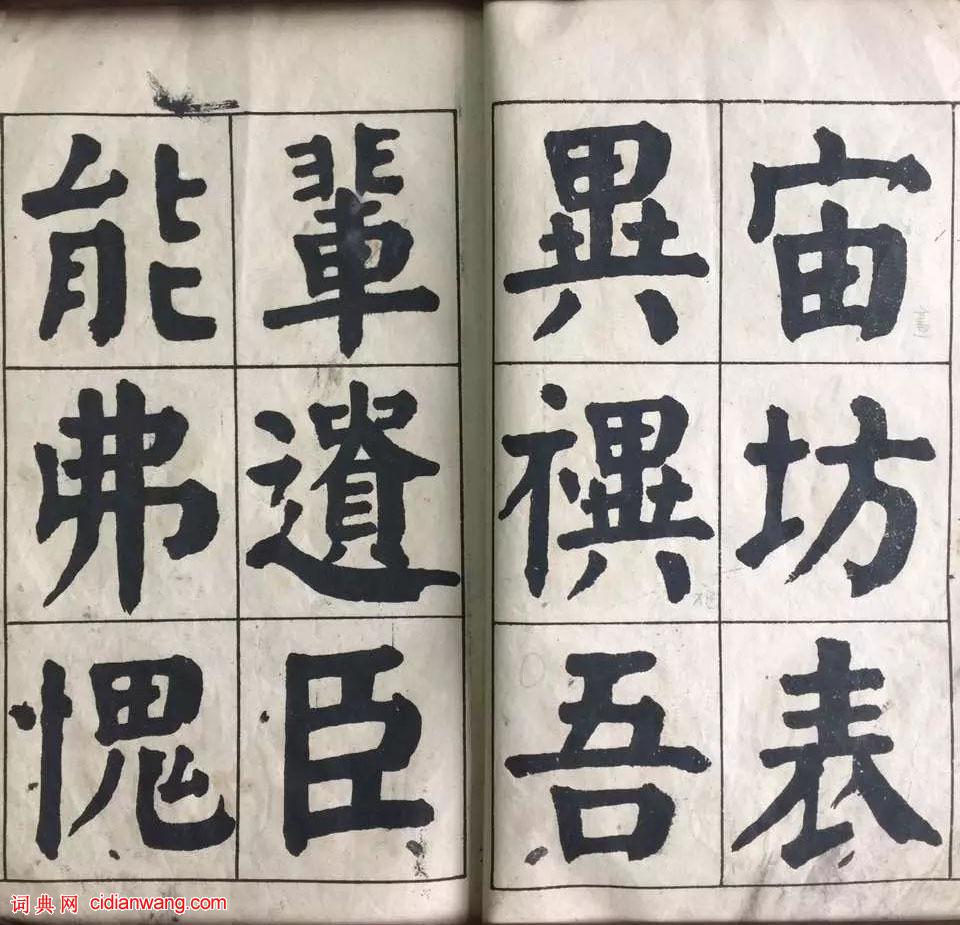 宙坊表
異禩吾
輩遺臣
能弗愧
词典网 cidianwang.com